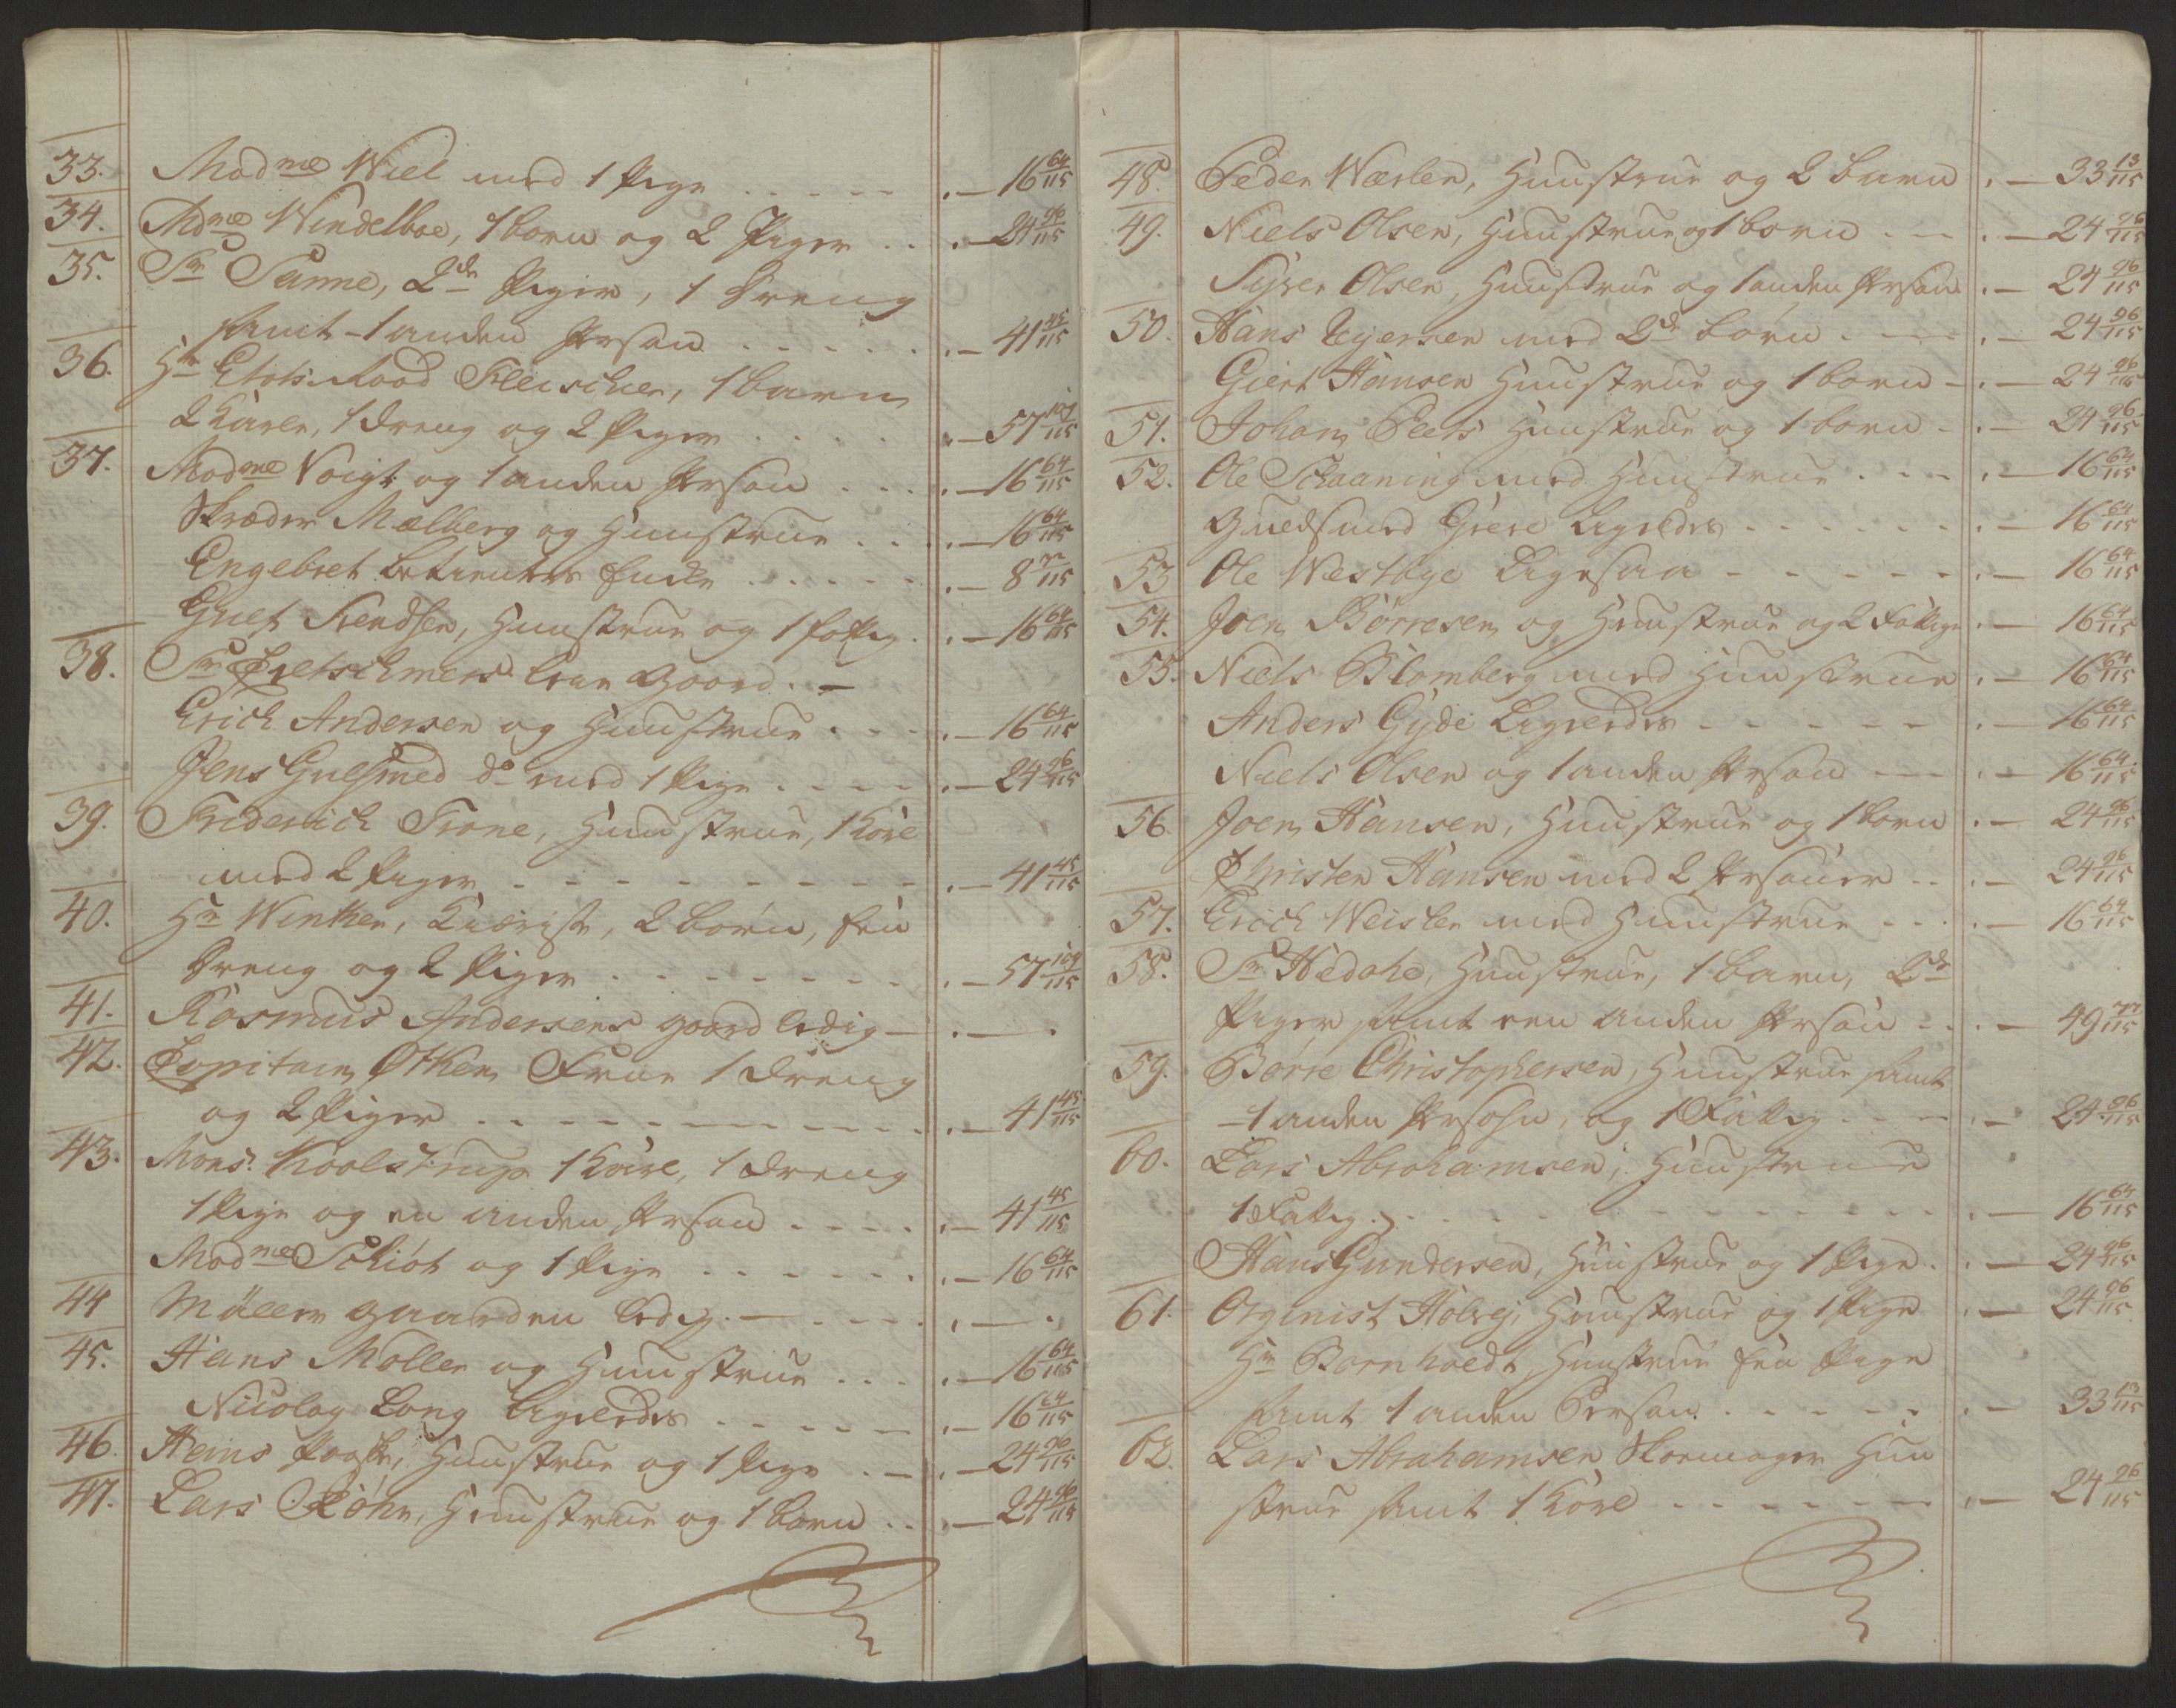 33. Madme Wiel med 1 Pige . . . . . . — 16 64/115
34. Mdme Windelboe, 1 barn og 2 Piger . . . — 24 96/115
35. Sr Sanne, 2de Piger, 1 Dreng
samt 1 anden Person . . . . . — 41 45/115
36. Hr Etats Raad Fleischer, 1 barn
2 Karle, 1 dreng og 2 Piger . . . . . — 57 109/115
37. Madme Voigt og 1 anden Person . . . — 16 64/115
Skræder Mælberg og Huustrue . . . — 16 64/115
Engebret betientes Encke . . . . . — 8 32/115
Gulf Svendsen, Huustrue og 1 fattig . — 16 64/115
38. Sr Kretschmers Gaard . —
Erich Andersen og Huustrue . . . — 16 64/115
Jens Gulsmed do med 1 Pige . . . . — 24 96/115
39. Friderich Trone, Huustrue, 1 Karl
med 2 Piger - - - - - - - - — 41 45/115
40. Hr Winther, Kiæriste, 2 børn, een
Dreng og 2 Piger . . . . . . . — 57 109/115
41. Rasmus Andersens gaard ledig — . — .
42. Capitain Othen Frue 1 dreng
og 2 Piger . . . . . . . . . . — 41 45/115
43. Mons. Koolstrup 1 Karl, 1 dreng
1 Pige og en anden Person . . . . — 41 45/115
Madme Schiøt og 1 Pige . . . . . . — 16 64/115
44 Møller gaarden ledig. — . . . . — .
45. Hans Møller og Huustrue . . . — 16 64/115
Nicolay Long ligeledes . . . . . — 16 64/115
46. Hans Paaske, Huustrue og 1 Pige . — — 24 96/115
47. Lars Røhr, Huustrue og 1 barn . . — 24 96/115
48. Peder Wærler, Huustrue og 2 barn . — 33 13/115
49. Niels Olsen, Huustrue og 1 barn . — 24 96/115
Siver Olsen, Huustrue og 1 anden Person . — 24 96/115
50. Hans Ejersen med 2de børn . — 24 96/115
Giert Hansen Huustrue og 1 barn — . — 24 96/115
51. Johan Peers Huustrue og 1 barn - . — 24 96/115
52. Ole Schaaning med Huustrue . . . — 16 64/115
Guldsmed Grere ligeledes . . . . . . — 16 64/115
53 Ole Westbye ligesaa - - - - - . — 16 64/115
54. Joen Børresen og Huustrue og 2 Fattige . — 16 64/115
55. Niels Blomberg med Huustrue . — 16 64/115
Anders Gyde ligeledes - - - - - . — 16 64/115
Niels Olsen og 1 anden Person — . — 16 64/115
56 Joen Hansen, Huustrue og 1 barn . — 24 96/115
Christen Hansen med 2 Personer . . . — 24 96/115
57. Erich Weisler med Huustrue . . . . — 16 64/115
58. Sr Hedahe, Huustrue, 1 barn, 2de
Piger samt een anden Person . . . — 49 77/115
59. Børre Christophersen, Huustrue samt
1 anden Persohn, og 1 Fattig . . — 24 96/115
60. Lars Abrahamsen, Huustrue
1 Fattig . . . . . . . . . . . — 16 64/115
Hans Gundersen, Huustrue og 1 Pige . . — 24 96/115
61. Organist Holvej, Huustrue og 1 Pige . — 24 96/115
Hr Bornholdt, Huustrue een Pige
samt 1 anden Person . . . . . . — 33 13/115
62. Lars Abrahamsen Skomager Huu
strue samt 1 Karl - - - - - - . — 24 96/115